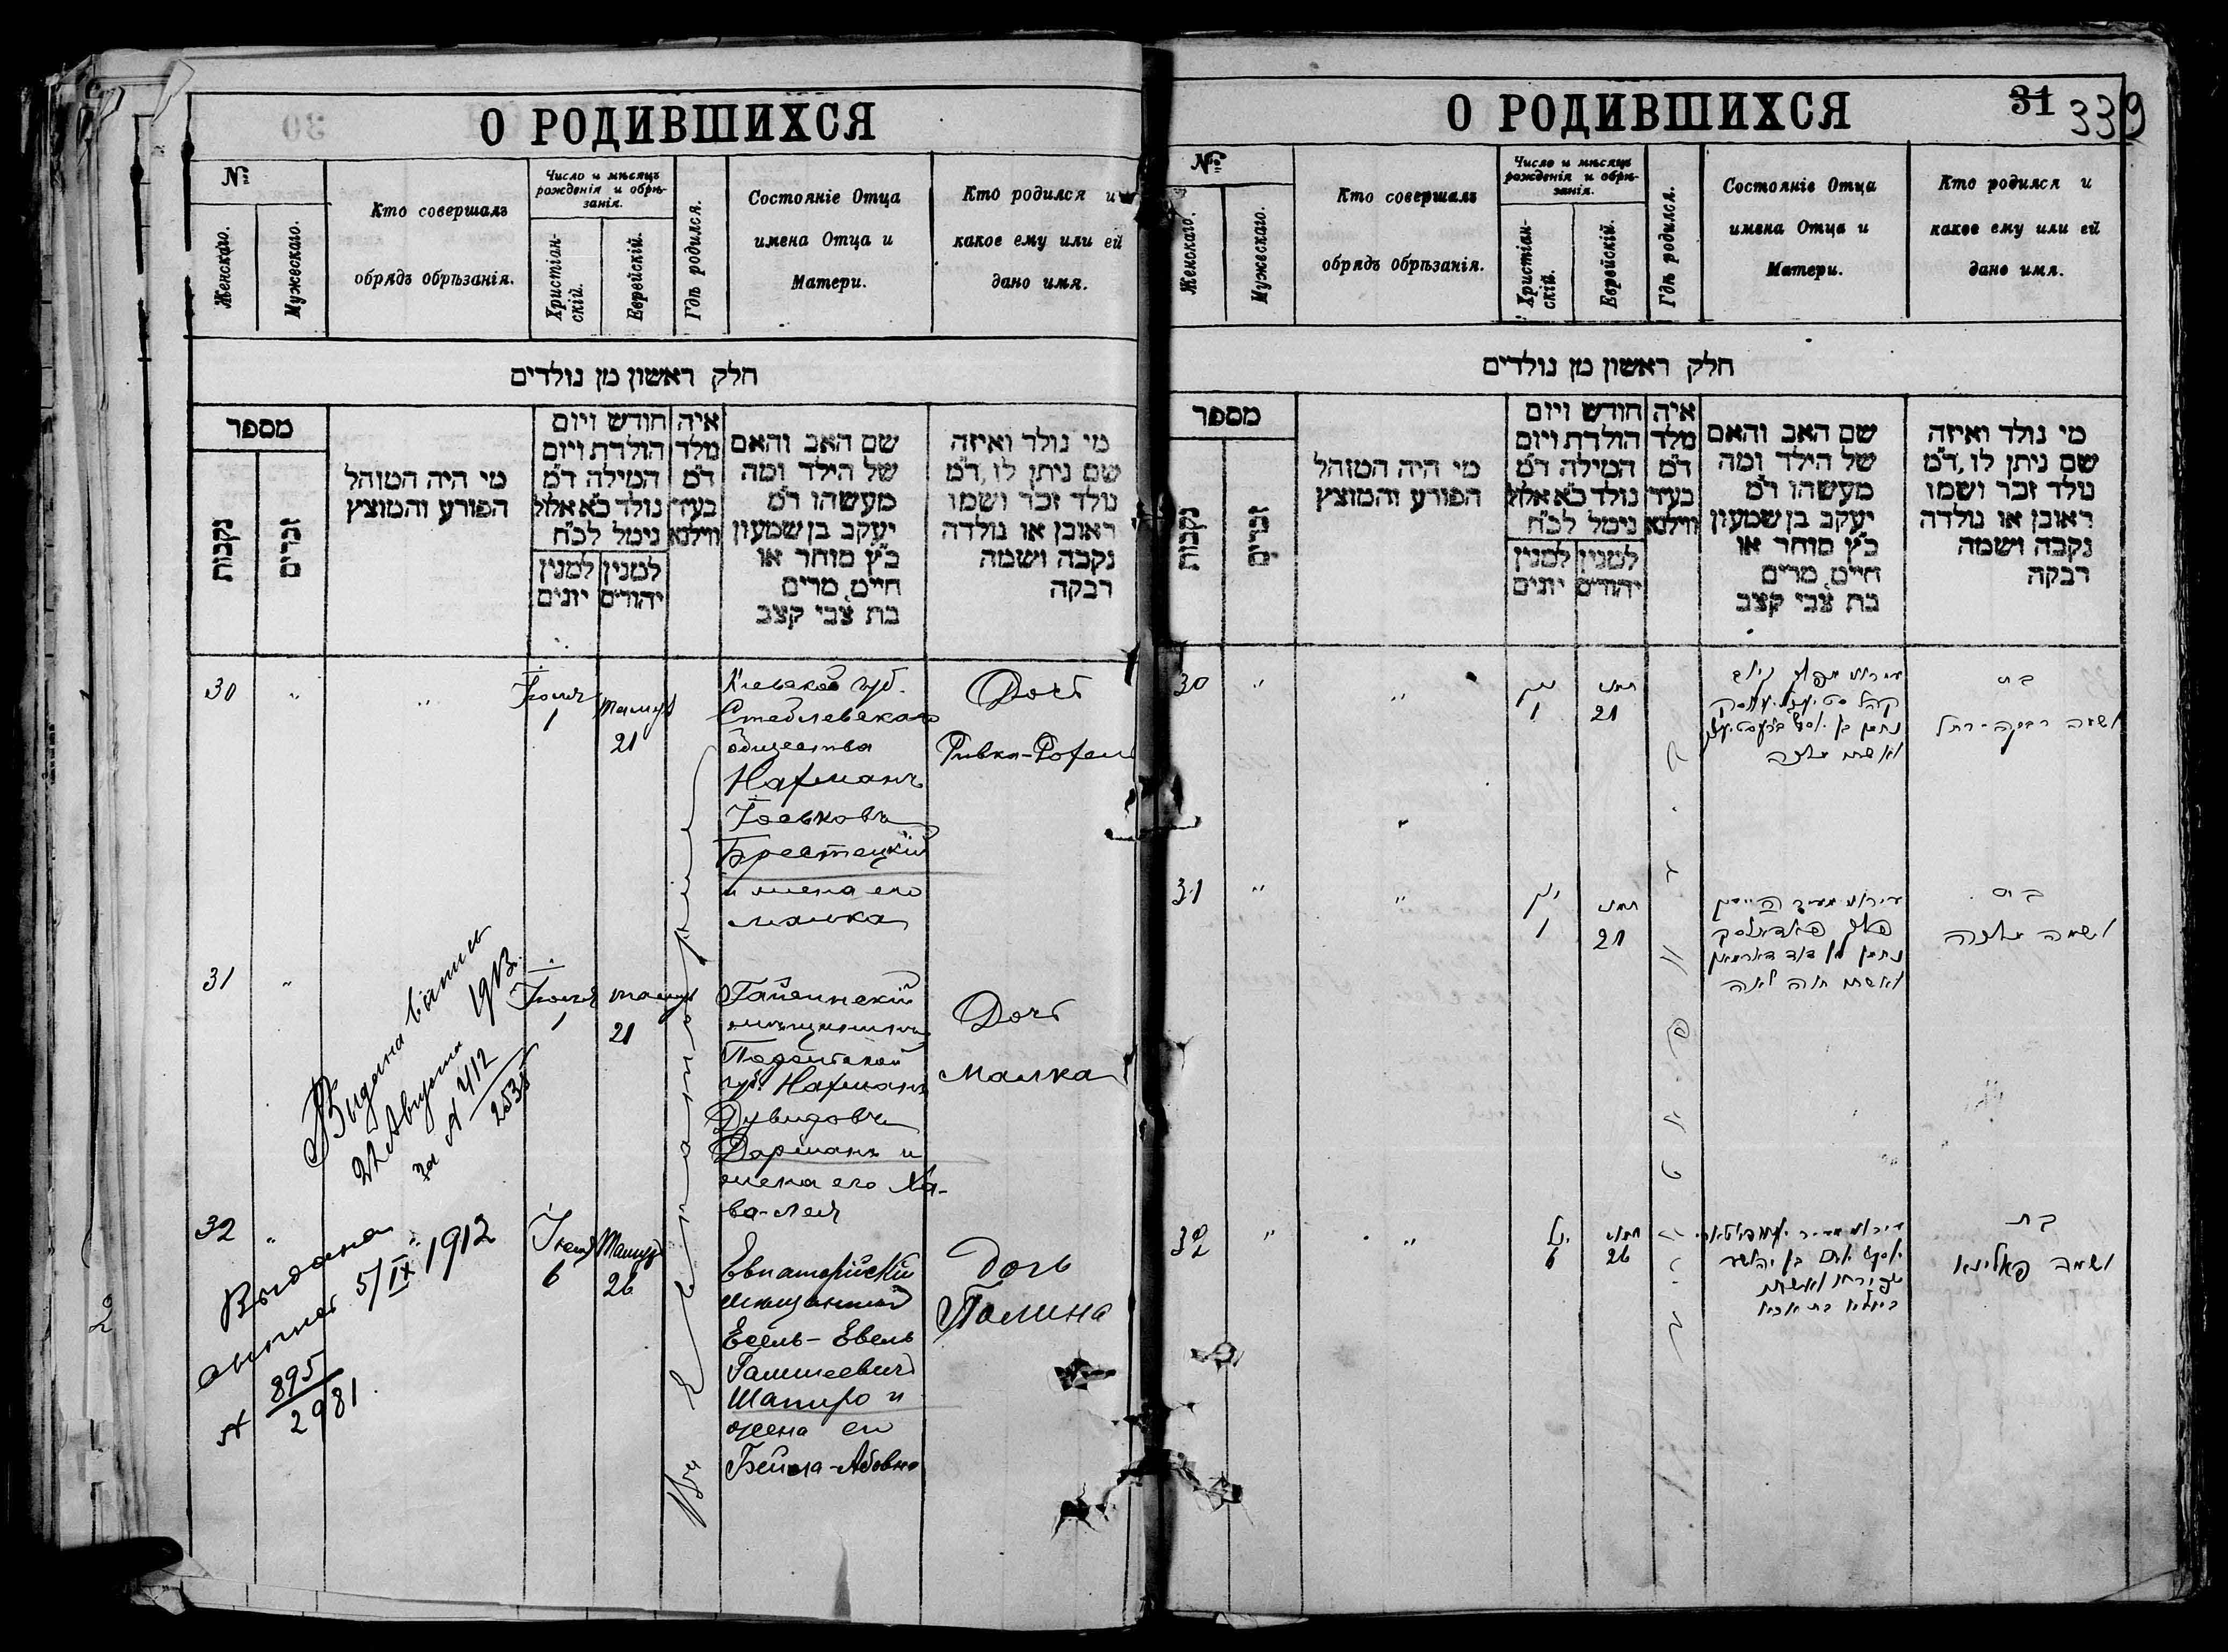 О РОДИВШИХСЯ
№
Женскаго.
Мужескаго.
Кто совершалъ
обрядъ обрѣзанія.
Число и мѣсяцъ
рожденія и обрѣ-
занія.
Христіан-
скій.
Еврейскій.
Гдѣ родился.
Состояніе Отца
имена Отца и
Матери.
Кто родился и
какое ему или ей
дано имя.
חלק ראשון מן נולדים
מספר
נקבות
זכרים
מי היה המוהל
הפורע והמוצץ
חודש ויום
הולדת ויום
המילה ד״מ
נולד כ״א אלול
נימל לכ״ח
למנין
יונים
למנין
יהודים
איה
נולד
ד״מ
בעיר
ווילנא
שם האב והאם
של הילד ומה
מעשהו ד״מ
יעקב בן שמעון
כ״ץ סוחר או
חיים, מרים
בת צבי קצב
מי נולד ואיזה
שם ניתן לו, ד״מ
נולד זכר ושמו
ראובן או נולדה
נקבה ושמה
רבקה
30
"
"
Іюля
1
Тамуз
21
Кіевской губ.
Стеблевскаго
общества
Нахманъ
Іоськовъ
Брестецкій
и жена его
Малка
Дочь
Ривка-Рохель
31
"
Выдана выпись
22 Августа 1913.
за № 412
2538
Іюля
1
Тамуз
21
Гайсинскій
мѣщанинъ
Подольской
губ. Нахманъ
Дувидовъ
Дорманъ и
жена его Ха-
ва-Лея
Дочь
Малка
32
"
Выдана
5/IX 1912
№ 895
2981
6
Тамуз
26
Евпаторійскій
мѣщанинъ
Есель-Евель
Шапиро и
жена его
Бейла-Абовна
Дочь
Полина
О РОДИВШИХСЯ
31
339
№
Женскаго.
Мужескаго.
Кто совершалъ
обрядъ обрѣзанія.
Число и мѣсяцъ
рожденія и обрѣ-
занія.
Христіан-
скій.
Еврейскій.
Гдѣ родился.
Состояніе Отца
имена Отца и
Матери.
Кто родился и
какое ему или ей
дано имя.
חלק ראשון מן נולדים
מספר
נקבות
זכרים
מי היה המוהל
הפורע והמוצץ
חודש ויום
הולדת ויום
המילה ד״מ
נולד כ״א אלול
נימל לכ״ח
למנין
יונים
למנין
יהודים
איה
נולד
ד״מ
בעיר
ווילנא
שם האב והאם
של הילד ומה
מעשהו ד״מ
יעקב בן שמעון
כ״ץ סוחר או
חיים, מרים
בת צבי קצב
מי נולד ואיזה
שם ניתן לו, ד״מ
נולד זכר ושמו
ראובן או נולדה
נקבה ושמה
רבקה
30
"
"
1
תמוז
21
ואשתו מלכה
בת
ושמה רבקה-רחל
31
"
"
1
תמוז
21
נחמן בן דוד דארמאן
ואשתו חוה לאה
בת
ושמה מלכה
32
"
"
6
תמוז
26
שפירא ואשתו
בת
ושמה פאלינא
2